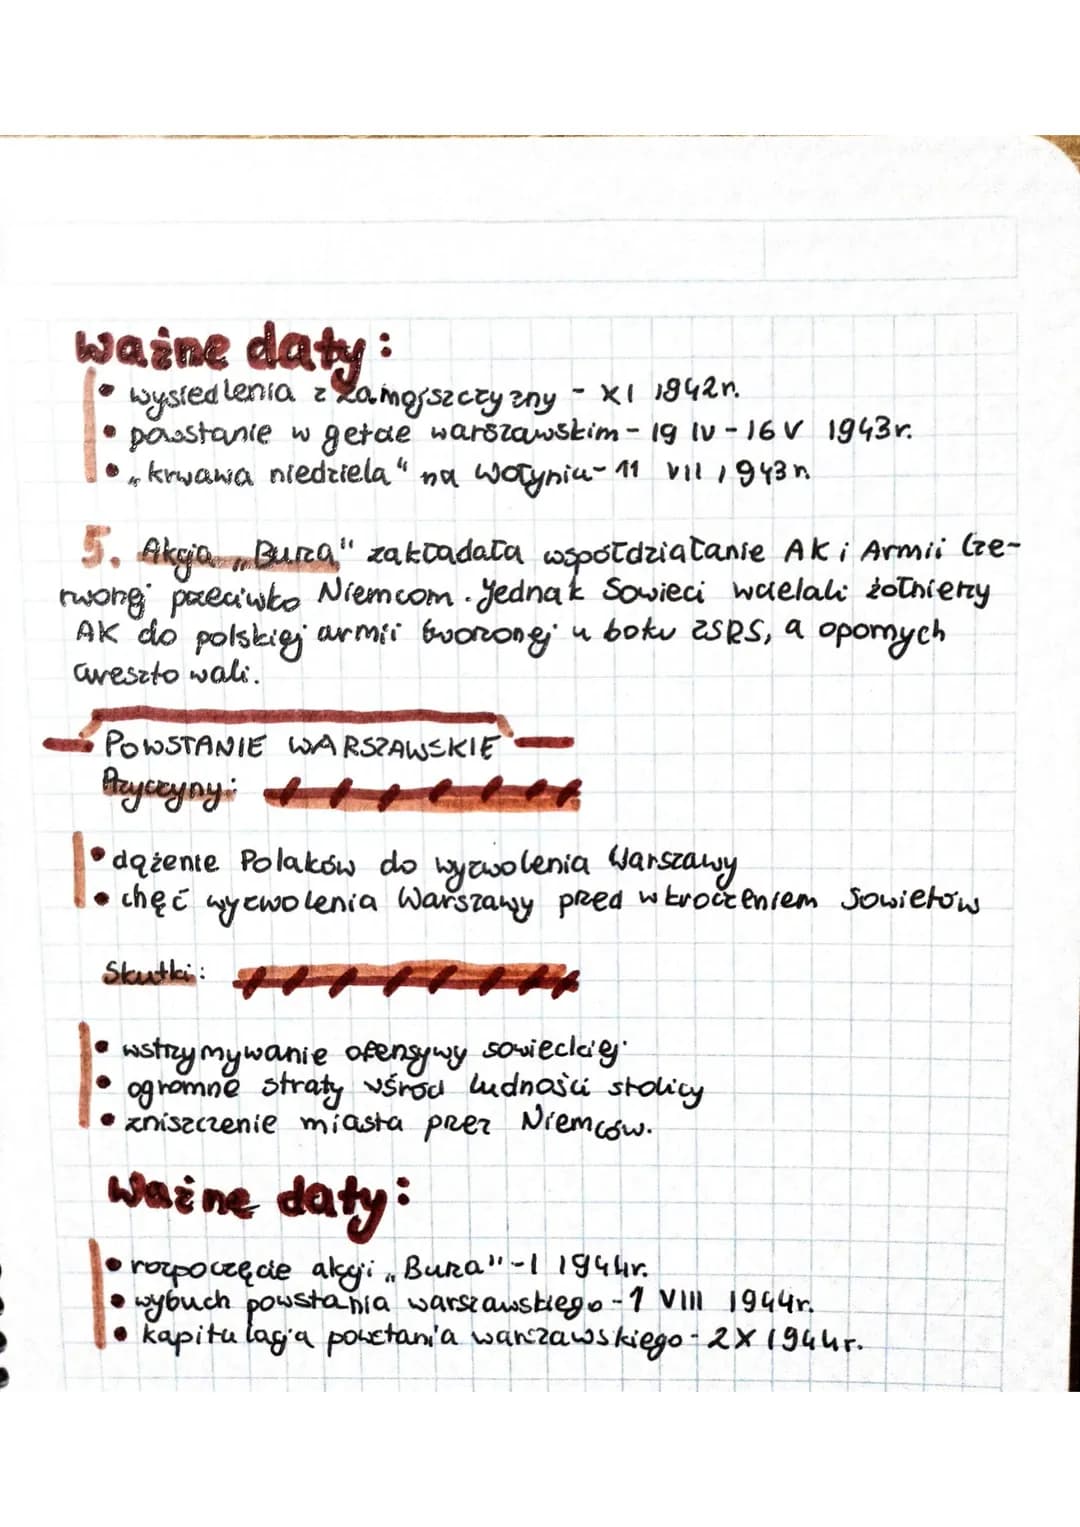 ważne daty:
• wysiedlenia z Zamojszczyzny - XI 1942r.
• powstanie w getcie warszawskim - 19 IV - 16 V 1943r.
• „krwawa niedziela" na Wołyniu - 11 VII 1943r.
5. Akcja „Burza" zakładała współdziałanie AK i Armii Cze-
rwonej przeciwko Niemcom. Jednak Sowieci wcielali żołnierzy
AK do polskiej armii tworzonej u boku ZSRS, a opornych
aresztowali.
POWSTANIE WARSZAWSKIE
Przyczyny:
• dążenie Polaków do wyzwolenia Warszawy
• chęć wyzwolenia Warszawy przed wkroczeniem Sowietów
Skutki:
• wstrzymywanie ofensywy sowieckiej
• ogromne straty wśród ludności stolicy
• zniszczenie miasta przez Niemców.
Ważne daty:
• rozpoczęcie akcji „Burza" - I 1944r.
• wybuch powstania warszawskiego - 1 VIII 1944r.
• kapitulacja powstania warszawskiego - 2 X 1944r.